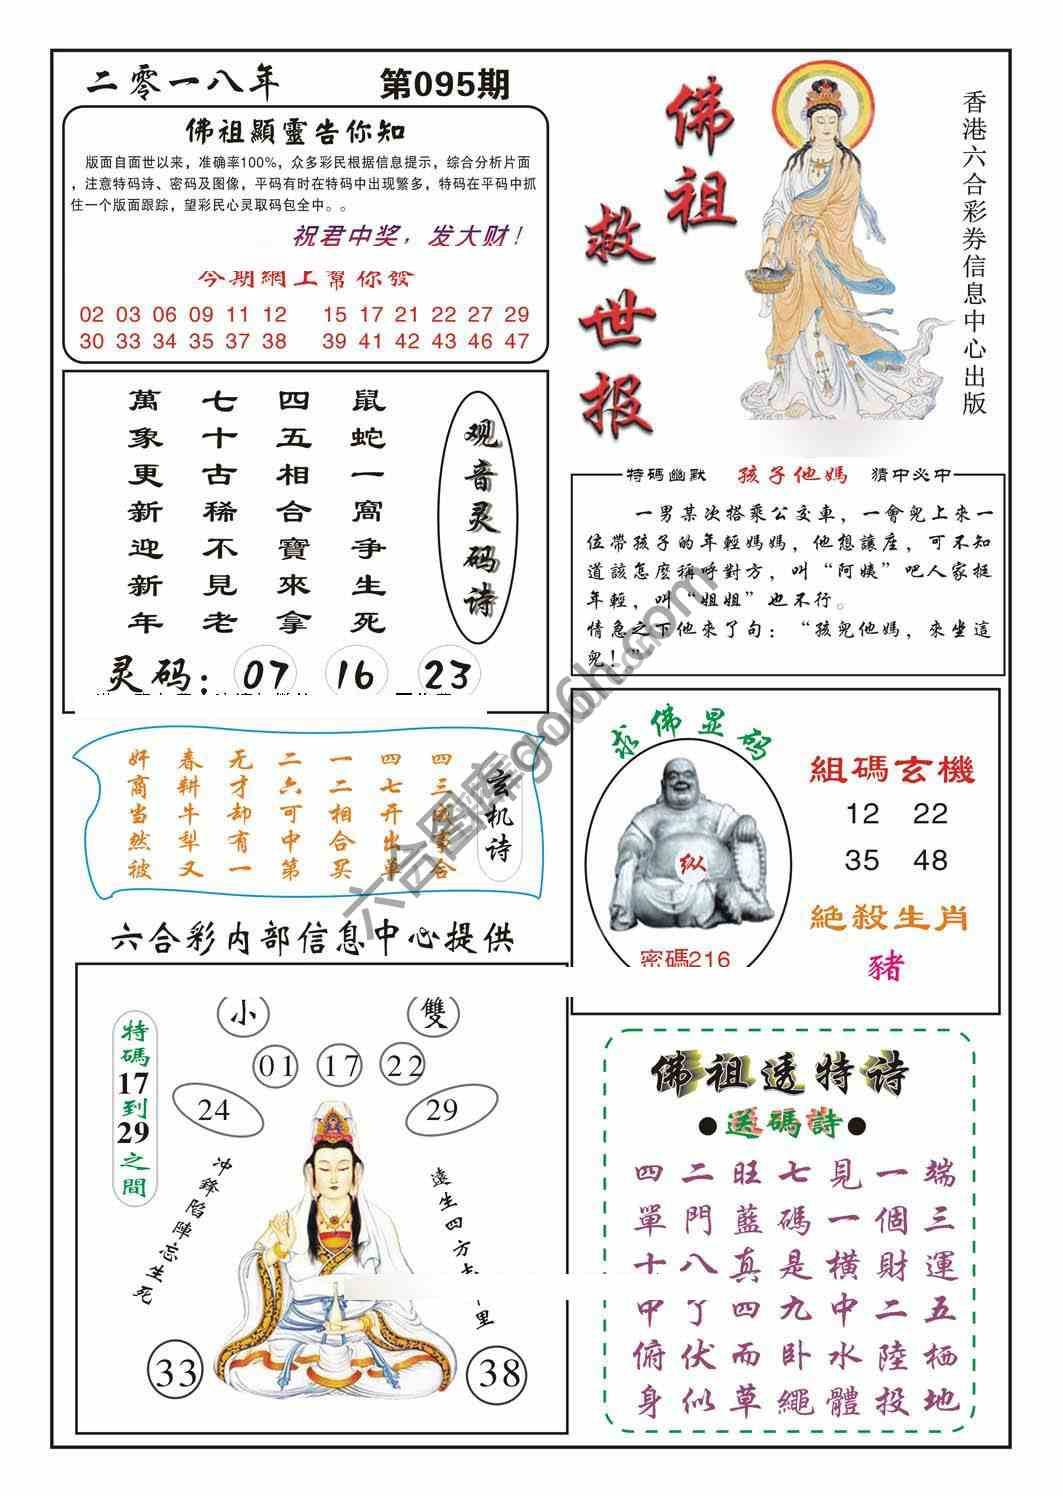 二零一八年 第095期
佛祖顯靈告你知
版面自面世以来，准确率100%，众多彩民根据信息提示，综合分析片面
，注意特码诗、密码及图像，平码有时在特码中出现繁多，特码在平码中抓
住一个版面跟踪，望彩民心灵取码包全中。。
祝君中奖，发大财！
今期網上幫你發
02 03 06 09 11 12 15 17 21 22 27 29
30 33 34 35 37 38 39 41 42 44 46 47
佛祖救世报
香港六合彩券信息中心出版
观音灵码诗
鼠蛇一窩争生死
四五相合寶來拿
七十古稀不見老
萬象更新迎新年
灵码：07 16 23
特碼幽默 孩子他媽 猜中必中
一男某次搭乘公交車，一會兒上來一
位帶孩子的年輕媽媽，他想讓座，可不知
道該怎麼稱呼對方，叫“阿姨”吧人家挺
年輕，叫“姐姐”也不行。
情急之下他來了句：“孩兒他媽，來坐這
兒！”
玄机诗
四三國事合
四七开出单
一二相合买
二六可中第
无才却有一
春耕牛犁又
奸商当然彼
求佛显码
纵
密碼216
組碼玄機
12 22
35 48
絕殺生肖
豬
六合彩内部信息中心提供
小 雙
01 17 22
24 29
特碼17到29之間
冲鋒陷陣忘生死
遠生四方
里
33 38
佛祖透特诗
●送碼詩●
端三運五栖地
一個財二陸投
見一横中水體
七碼是九卧繩
旺藍真四而草
二門八丁伏似
四單十甲俯身
六合图库go6h.com